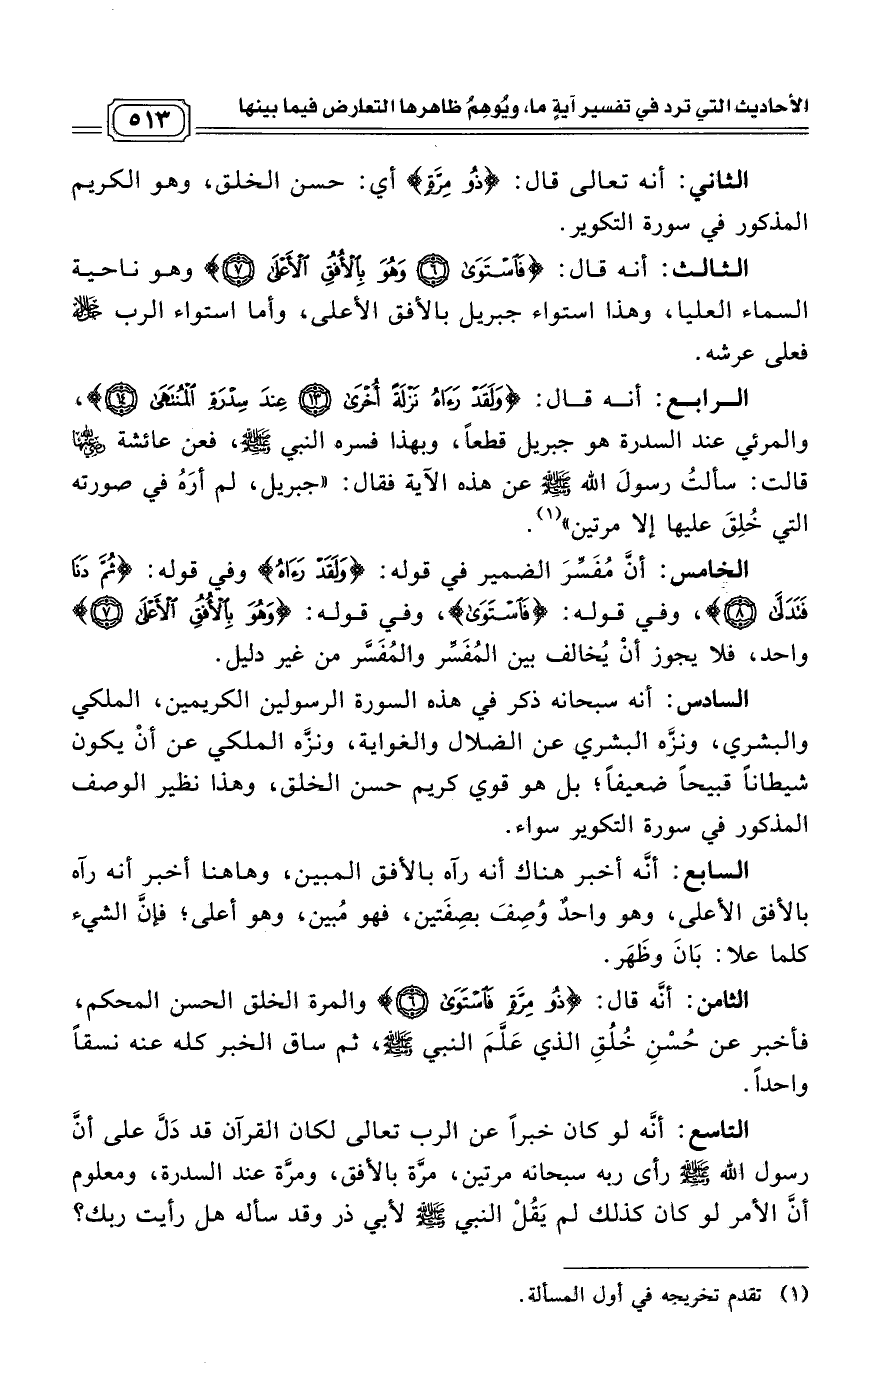 الأحاديث التي ترد في تفسير آيةٍ ما، ويُوهِمُ ظاهرها التعارض فيما بينها
٥١٣
الثاني: أنه تعالى قال: ﴿ذُو مِرَّةٍ﴾ أي: حسن الخلق، وهو الكريم
المذكور في سورة التكوير.
الثالث: أنه قال: ﴿فَٱسْتَوَىٰ ۝٦ وَهُوَ بِٱلْأُفُقِ ٱلْأَعْلَىٰ ۝٧﴾ وهو ناحية
السماء العليا، وهذا استواء جبريل بالأفق الأعلى، وأما استواء الرب ﷻ
فعلى عرشه.
الرابع: أنه قال: ﴿وَلَقَدْ رَءَاهُ نَزْلَةً أُخْرَىٰ ۝١٣ عِندَ سِدْرَةِ ٱلْمُنتَهَىٰ ۝١٤﴾،
والمرئي عند السدرة هو جبريل قطعاً، وبهذا فسره النبي ﷺ، فعن عائشة رضي الله عنها
قالت: سألتُ رسولَ الله ﷺ عن هذه الآية فقال: «جبريل، لم أرَهُ في صورته
التي خُلِقَ عليها إلا مرتين»(١).
الخامس: أنَّ مُفَسِّرَ الضمير في قوله: ﴿وَلَقَدْ رَءَاهُ﴾ وفي قوله: ﴿ثُمَّ دَنَا
فَتَدَلَّىٰ ۝٨﴾، وفي قوله: ﴿فَٱسْتَوَىٰ﴾، وفي قوله: ﴿وَهُوَ بِٱلْأُفُقِ ٱلْأَعْلَىٰ ۝٧﴾
واحد، فلا يجوز أنْ يُخالف بين المُفَسِّر والمُفَسَّر من غير دليل.
السادس: أنه سبحانه ذكر في هذه السورة الرسولين الكريمين، الملكي
والبشري، ونزَّه البشري عن الضلال والغواية، ونزَّه الملكي عن أنْ يكون
شيطاناً قبيحاً ضعيفاً؛ بل هو قوي كريم حسن الخلق، وهذا نظير الوصف
المذكور في سورة التكوير سواء.
السابع: أنَّه أخبر هناك أنه رآه بالأفق المبين، وهاهنا أخبر أنه رآه
بالأفق الأعلى، وهو واحدٌ وُصِفَ بصِفَتين، فهو مُبين، وهو أعلى؛ فإنَّ الشيء
كلما علا: بَانَ وظَهَر.
الثامن: أنَّه قال: ﴿ذُو مِرَّةٍ فَٱسْتَوَىٰ ۝٦﴾ والمرة الخلق الحسن المحكم،
فأخبر عن حُسْنِ خُلُقِ الذي عَلَّمَ النبي ﷺ، ثم ساق الخبر كله عنه نسقاً
واحداً.
التاسع: أنَّه لو كان خبراً عن الرب تعالى لكان القرآن قد دَلَّ على أنَّ
رسول الله ﷺ رأى ربه سبحانه مرتين، مرَّة بالأفق، ومرَّة عند السدرة، ومعلوم
أنَّ الأمر لو كان كذلك لم يَقُلْ النبي ﷺ لأبي ذر وقد سأله هل رأيت ربك؟
(١) تقدم تخريجه في أول المسألة.